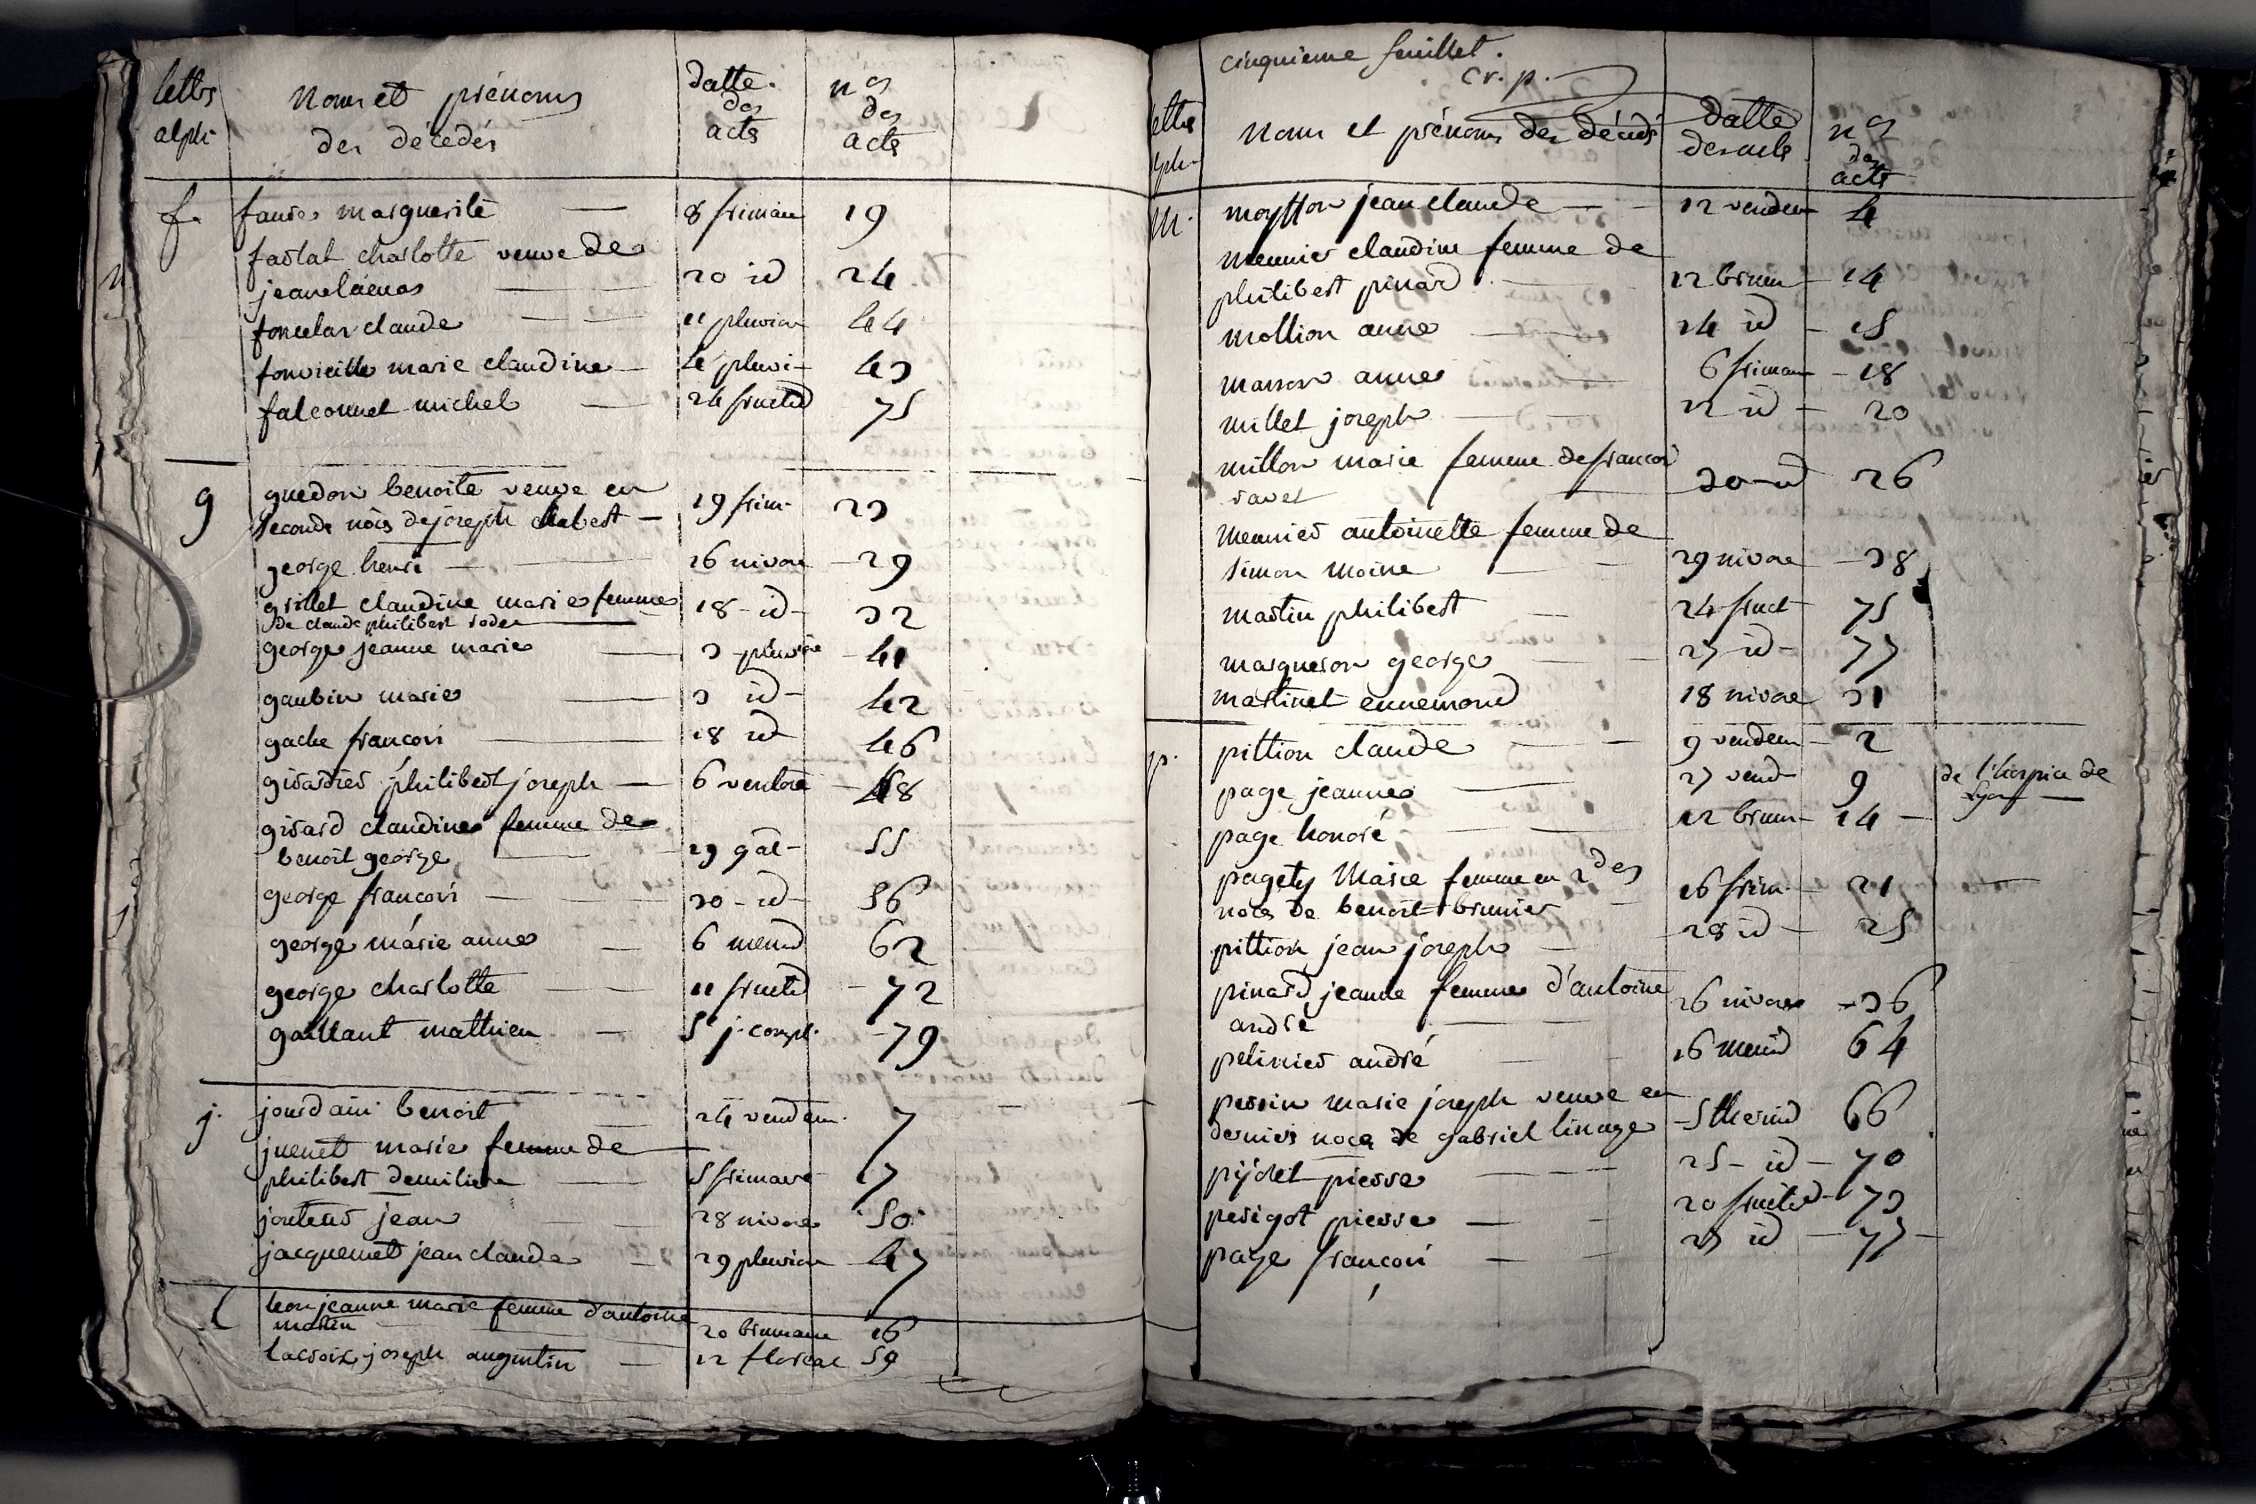 lettrs alph.
noms et prénoms des décedés
datte des acts
nos des acts
f. faure marguerite — 8 frimaire 19
farlat charlotte veuve de
jean — 20 id 24
claude — 11 pluviose 44
fonvieille marie claudine — 4 pluvi- 43
falconnet michel — 24 fructid 75
g guedon benoite veuve en
seconde nôces de joseph — 19 frim- 23
george henri — 26 nivose — 29
grillet claudine marie femme
de claude philibert — 18 - id - 32
george jeanne marie — 3 pluviose — 41
gaubin marie — 3 id - 42
gache françois — 18 id 46
girardier philibert joseph — 6 ventose — 48
girard claudine femme de
benoit george — 29 55
george françois — 30 - id - 56
george marie anne — 6 messid 62
george charlotte — 11 fructid — 72
gaillant mathieu — 5 j. compl. — 79
j. jourdain benoit — 24 vendem. 7
juenet marie femme de
philibert — 5 frimaire 17
jean — 28 nivose 50
jacquemet jean claude — 29 pluviose 47
l leon jeanne marie femme d'antoine
martin — 20 brumaire 16
lacroix joseph augustin — 12 floreal 59
cinquieme feuillet.
cr. p.
lettrs alph-
noms et prénoms des décédés
datte des acts
nos des acts
m. jean claude — 12 vendem 4
meunier claudine femme de
philibert pinard — 12 brum — 14
mollion anne — 14 id — 15
anne — 6 frimaire — 18
millet joseph — 12 id — 20
millon marie femme de françois
ravet — 30 - id 26
meunier antoinette femme de
simon moine — 29 nivose — 38
martin philibert — 24 fruct — 75
margueron george — 27 id — 77
martinet ennemond 18 nivose 31
p. pittion claude — 9 vendem — 2
page jeanne — 27 vend 9 de l'hospice de
Lyon —
page honoré — 12 brum — 14 —
pagety Marie femme en 2des
noces de benoit brunier — 16 frim. — 21 —
pittion jean joseph — 28 id — 25
pinard jeanne femme d'antoine
andré — 26 nivose — 36
andré — 16 messid 64
perrin marie joseph veuve en
dernier noces de gabriel linage — 5 thermid 66
pierre — 25 - id — 70
perigot pierre — 20 fructid — 73
page françois — 27 id — 77 —